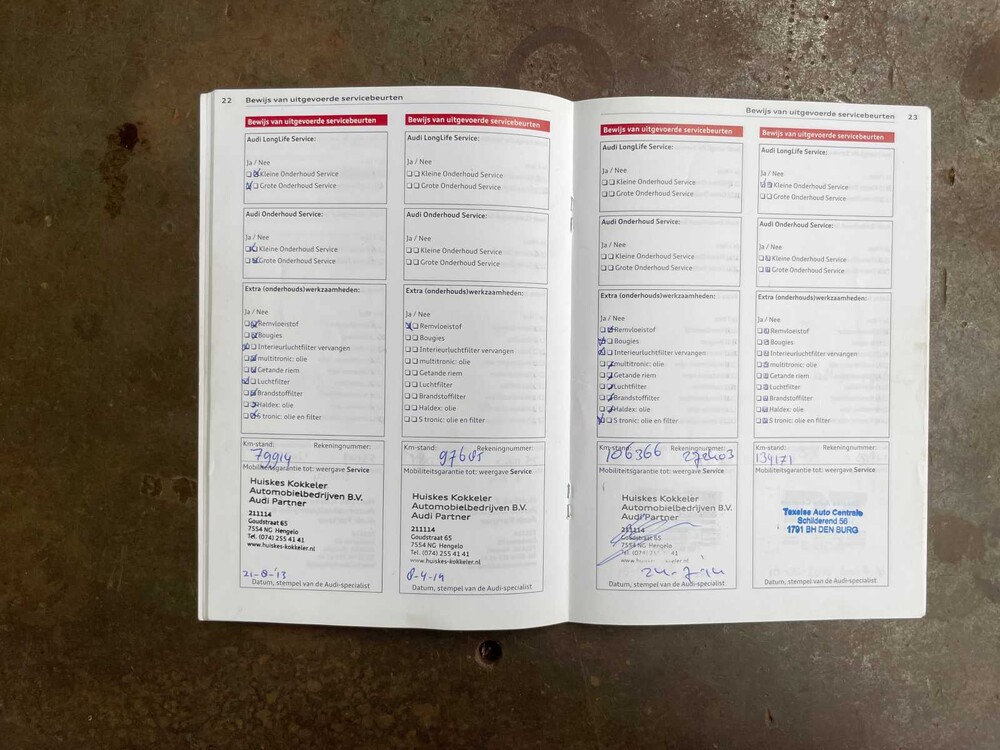 22 Bewijs van uitgevoerde servicebeurten
Bewijs van uitgevoerde servicebeurten
Audi LongLife Service:
Ja / Nee
Kleine Onderhoud Service
Grote Onderhoud Service
Audi Onderhoud Service:
Ja / Nee
Kleine Onderhoud Service
Grote Onderhoud Service
Extra (onderhouds)werkzaamheden:
Ja / Nee
Remvloeistof
Bougies
Interieurluchtfilter vervangen
multitronic: olie
Getande riem
Luchtfilter
Brandstoffilter
Haldex: olie
S tronic: olie en filter
Km-stand: Rekeningnummer:
79914
Mobiliteitsgarantie tot: weergave Service
Huiskes Kokkeler
Automobielbedrijven B.V.
Audi Partner
211114
Goudstraat 65
7554 NG Hengelo
Tel. (074) 255 41 41
www.huiskes-kokkeler.nl
21-8-'13
Datum, stempel van de Audi-specialist
Bewijs van uitgevoerde servicebeurten
Audi LongLife Service:
Ja / Nee
Kleine Onderhoud Service
Grote Onderhoud Service
Audi Onderhoud Service:
Ja / Nee
Kleine Onderhoud Service
Grote Onderhoud Service
Extra (onderhouds)werkzaamheden:
Ja / Nee
Remvloeistof
Bougies
Interieurluchtfilter vervangen
multitronic: olie
Getande riem
Luchtfilter
Brandstoffilter
Haldex: olie
S tronic: olie en filter
Km-stand: Rekeningnummer:
Mobiliteitsgarantie tot: weergave Service
Huiskes Kokkeler
Automobielbedrijven B.V.
Audi Partner
211114
Goudstraat 65
7554 NG Hengelo
Tel. (074) 255 41 41
www.huiskes-kokkeler.nl
8-4-14
Datum, stempel van de Audi-specialist
Bewijs van uitgevoerde servicebeurten 23
Bewijs van uitgevoerde servicebeurten
Audi LongLife Service:
Ja / Nee
Kleine Onderhoud Service
Grote Onderhoud Service
Audi Onderhoud Service:
Ja / Nee
Kleine Onderhoud Service
Grote Onderhoud Service
Extra (onderhouds)werkzaamheden:
Ja / Nee
Remvloeistof
Bougies
Interieurluchtfilter vervangen
multitronic: olie
Getande riem
Luchtfilter
Brandstoffilter
Haldex: olie
S tronic: olie en filter
Km-stand: Rekeningnummer:
106366
Mobiliteitsgarantie tot: weergave Service
Huiskes Kokkeler
Automobielbedrijven B.V.
Audi Partner
211114
Goudstraat 65
7554 NG Hengelo
Tel. (074) 255 41 41
24-7-'14
Datum, stempel van de Audi-specialist
Bewijs van uitgevoerde servicebeurten
Audi LongLife Service:
Ja / Nee
Kleine Onderhoud Service
Grote Onderhoud Service
Audi Onderhoud Service:
Ja / Nee
Kleine Onderhoud Service
Grote Onderhoud Service
Extra (onderhouds)werkzaamheden:
Ja / Nee
Remvloeistof
Bougies
Interieurluchtfilter vervangen
multitronic: olie
Getande riem
Luchtfilter
Brandstoffilter
Haldex: olie
S tronic: olie en filter
Km-stand: Rekeningnummer:
134171
Mobiliteitsgarantie tot: weergave Service
Texelse Auto Centrale
Schilderend 56
1791 BH DEN BURG
Datum, stempel van de Audi-specialist